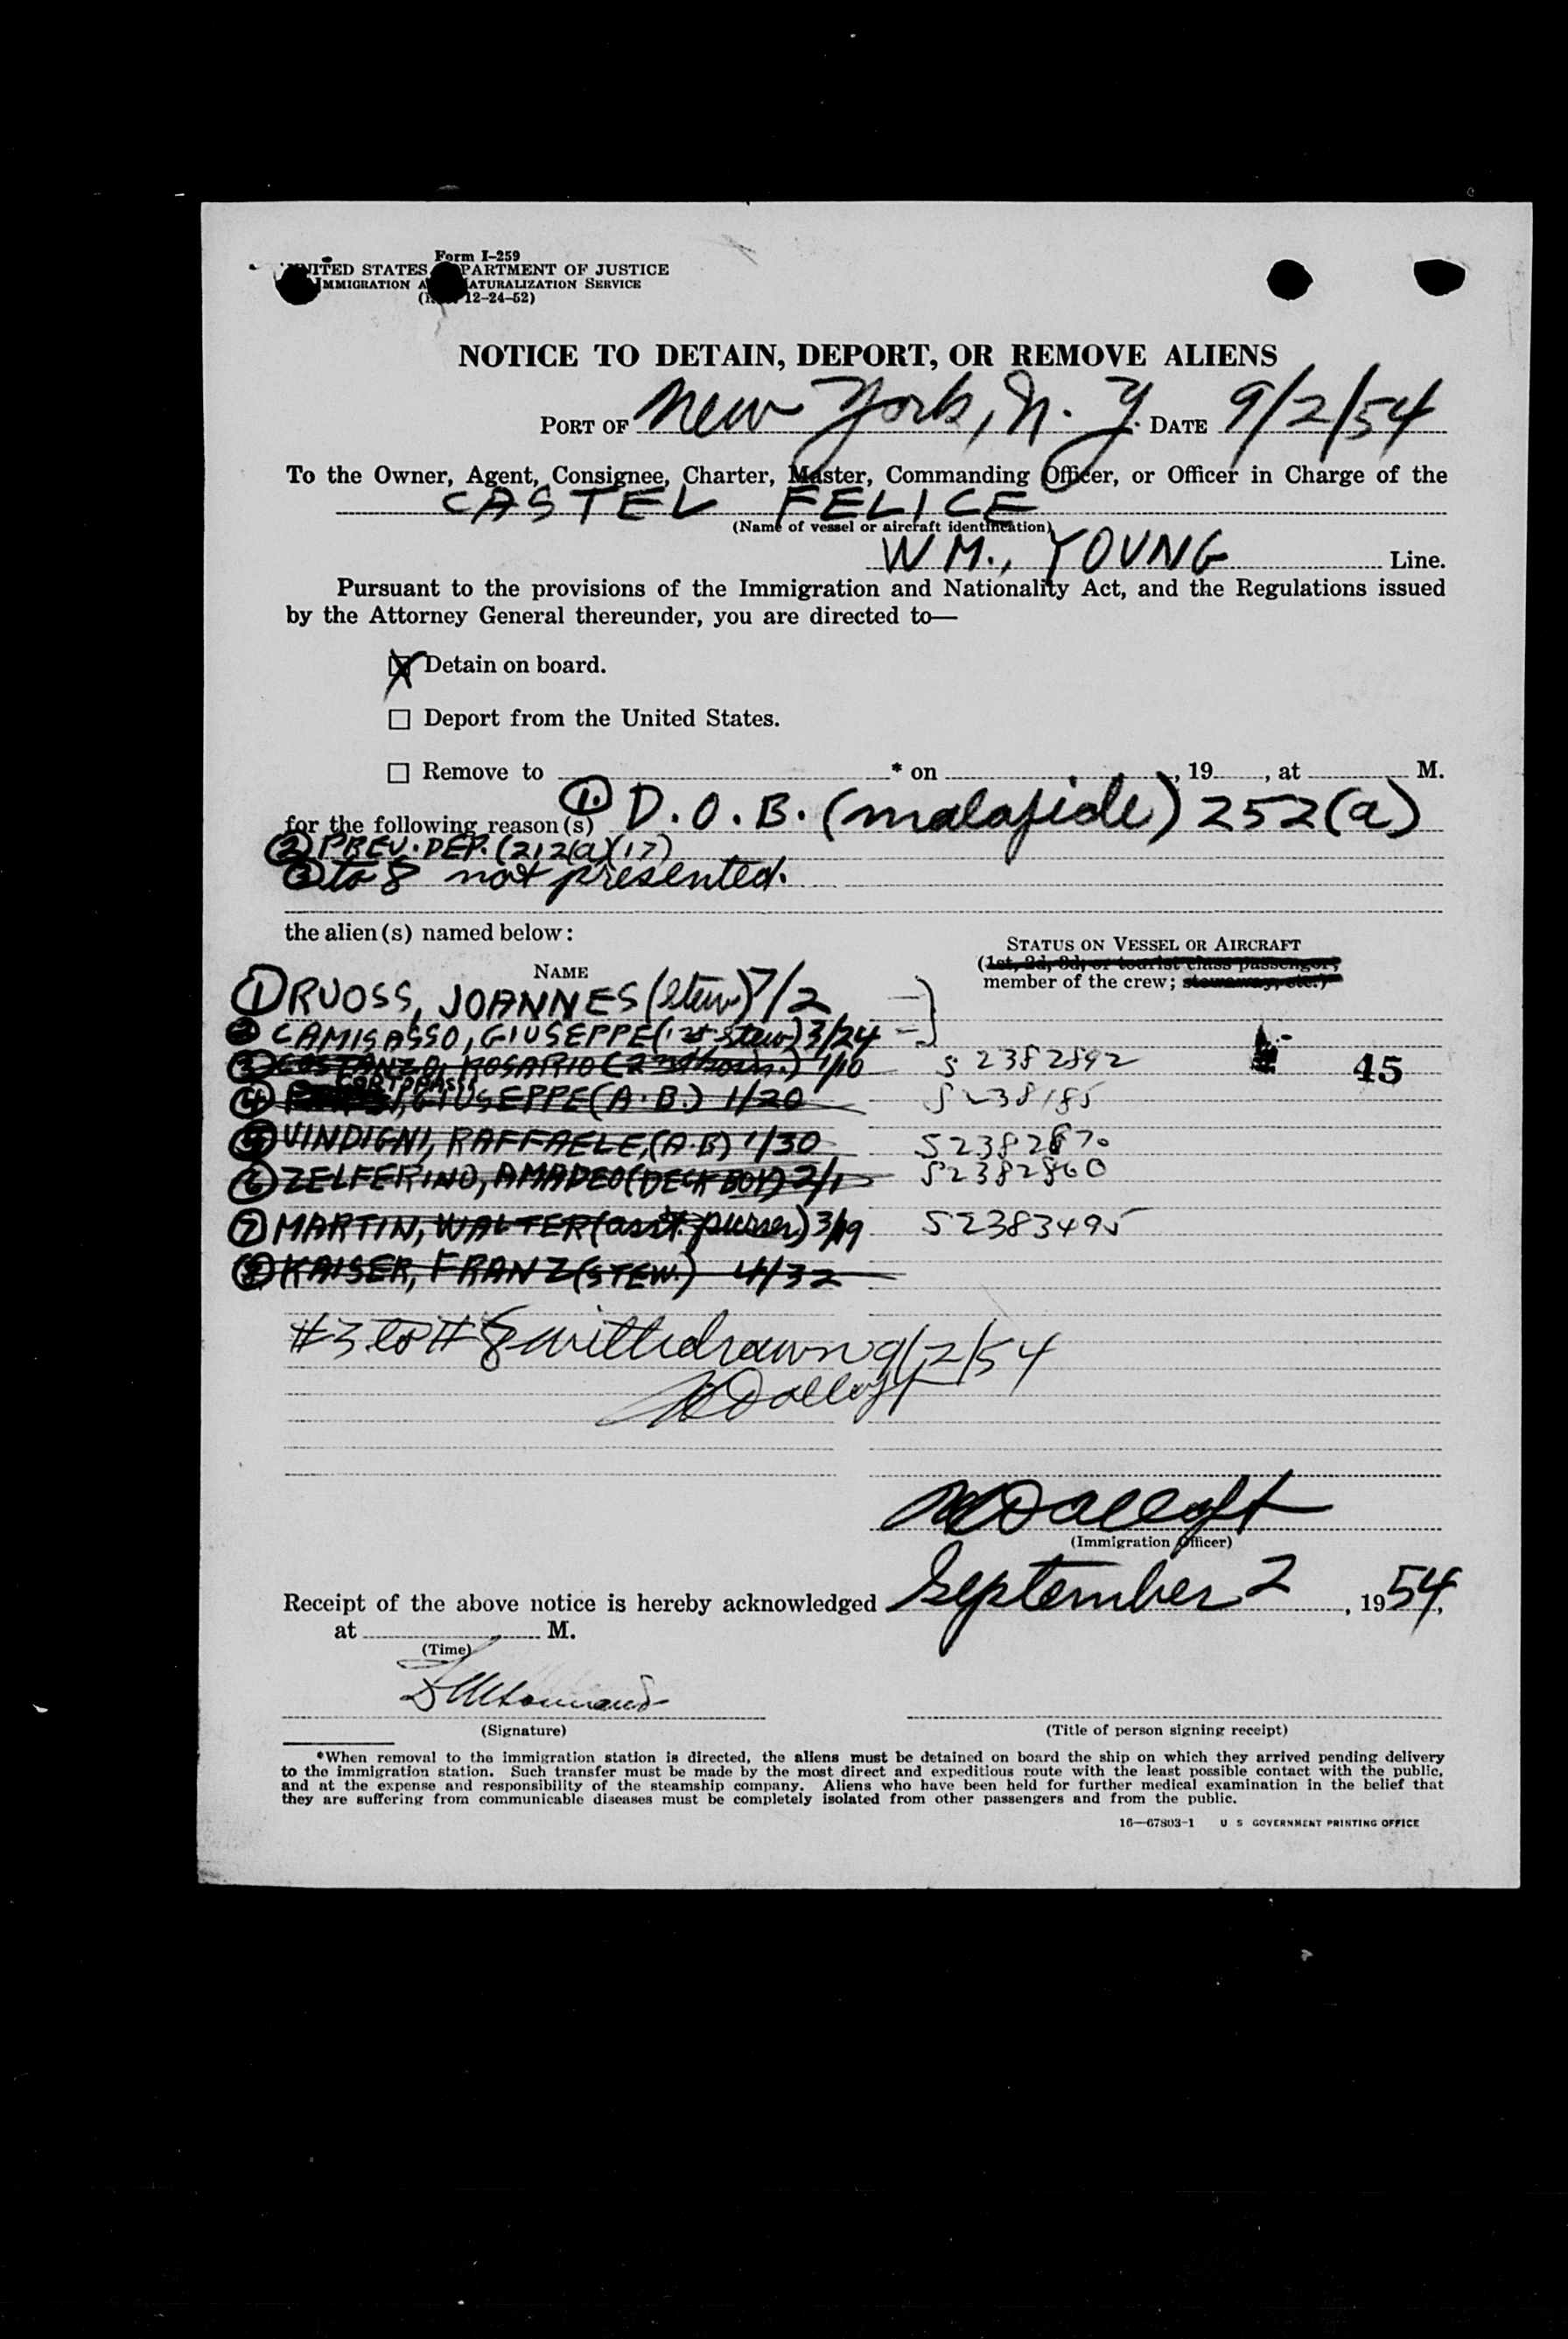 Form I-259
UNITED STATES DEPARTMENT OF JUSTICE
IMMIGRATION AND NATURALIZATION SERVICE
12-24-52)
NOTICE TO DETAIN, DEPORT, OR REMOVE ALIENS
PORT OF New York, N. Y. DATE 9/2/54
To the Owner, Agent, Consignee, Charter, Master, Commanding Officer, or Officer in Charge of the
CASTEL FELICE
(Name of vessel or aircraft identification)
WM., YOUNG Line.
Pursuant to the provisions of the Immigration and Nationality Act, and the Regulations issued
by the Attorney General thereunder, you are directed to—
X Detain on board.
☐ Deport from the United States.
☐ Remove to * on , 19 , at M.
for the following reason(s) 1. D.O.B. (malafide) 252(a)
2 PREV. DEP. (212(a)(17)
3 to 8 not presented.
the alien(s) named below:
STATUS ON VESSEL OR AIRCRAFT
NAME
(1st, 2d, 3d, or tourist class passenger;
member of the crew; stowaway, etc.)
1 RUOSS, JOANNES (stew) 7/2
2 CAMISASSO, GIUSEPPE (1st stew) 3/24
3 COSTANZO, ROSARIO (2nd ) 1/10 S 2382892
4 , GIUSEPPE (A.B.) 1/20
45
5 VINDIGNI, RAFFAELE, (A.B) 1/30 S2382870
6 ZELFERINO, AMADEO (DECK BOY) 2/1 S2382860
7 MARTIN, WALTER (asst. purser) 3/19 S2383495
8 KAISER, FRANZ (STEW.) 4/32
#3 to #8 withdrawn 9/2/54
(Immigration Officer)
Receipt of the above notice is hereby acknowledged September 2, 1954,
at M.
(Time)
(Signature) (Title of person signing receipt)
*When removal to the immigration station is directed, the aliens must be detained on board the ship on which they arrived pending delivery
to the immigration station. Such transfer must be made by the most direct and expeditious route with the least possible contact with the public,
and at the expense and responsibility of the steamship company. Aliens who have been held for further medical examination in the belief that
they are suffering from communicable diseases must be completely isolated from other passengers and from the public.
16—67803-1 U S GOVERNMENT PRINTING OFFICE